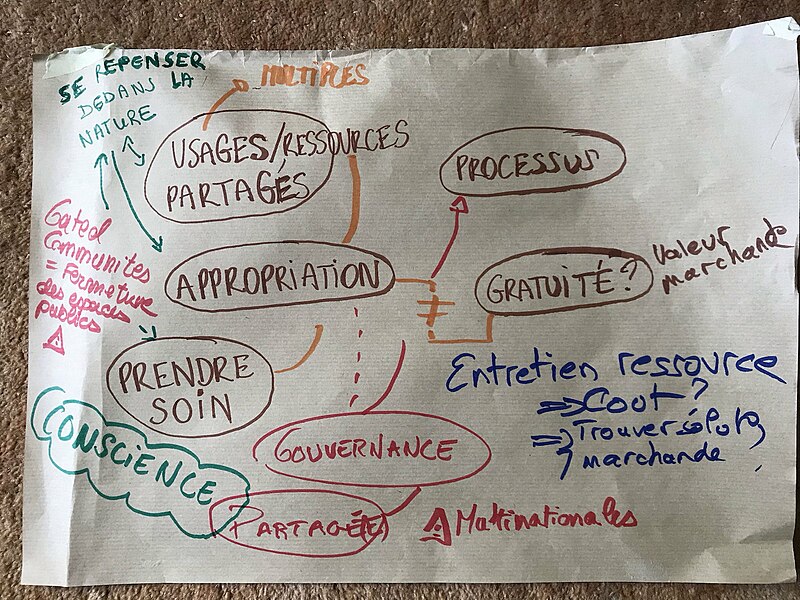 SE REPENSER
DEDANS LA
NATURE
MULTIPLES
USAGES/RESSOURCES
PARTAGÉS
PROCESSUS
Gated
Communites
= Fermeture
des espaces
publics
APPROPRIATION
≠
GRATUITÉ?
Valeur
marchande
PRENDRE
SOIN
Entretien ressource
=> Coot?
=> Trouver
marchande
CONSCIENCE
GOUVERNANCE
PARTAGÉ(E)
Multinationales